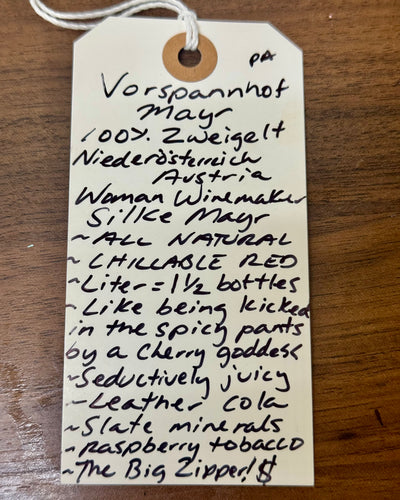 PA
Vorspannhof
Mayr
100% Zweigelt
Niederösterreich
Austria
Woman Winemaker
Silke Mayr
~ ALL NATURAL
~ CHILLABLE RED
~Liter = 1 1/2 bottles
- Like being kicked
in the spicy pants
by a cherry goddess
~Seductively juicy
~Leather cola
~Slate minerals
~Raspberry tobacco
~The Big Zipper!$